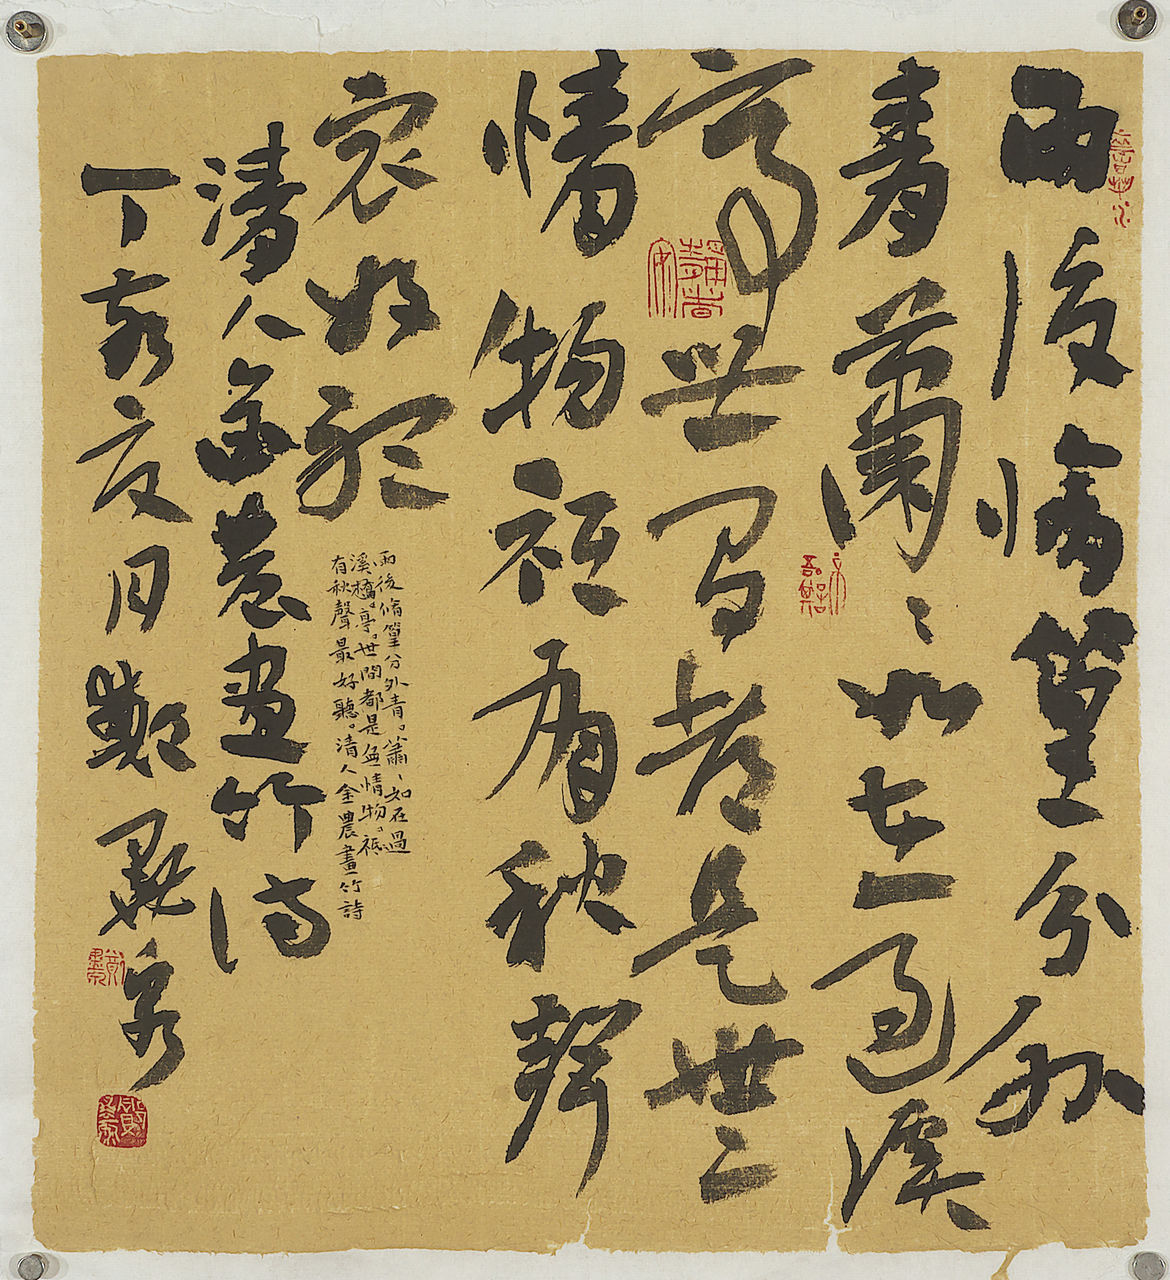 雨後脩篁分外
青蕭〻如在過溪
亭世間都是無
情物祗有秋聲
最好聽
雨後脩篁分外青。蕭〻如在過
溪橋亭。世間都是無情物。祗
有秋聲最好聽。清人金農畫竹詩
清人金農畫竹詩
丁亥夏月鄭